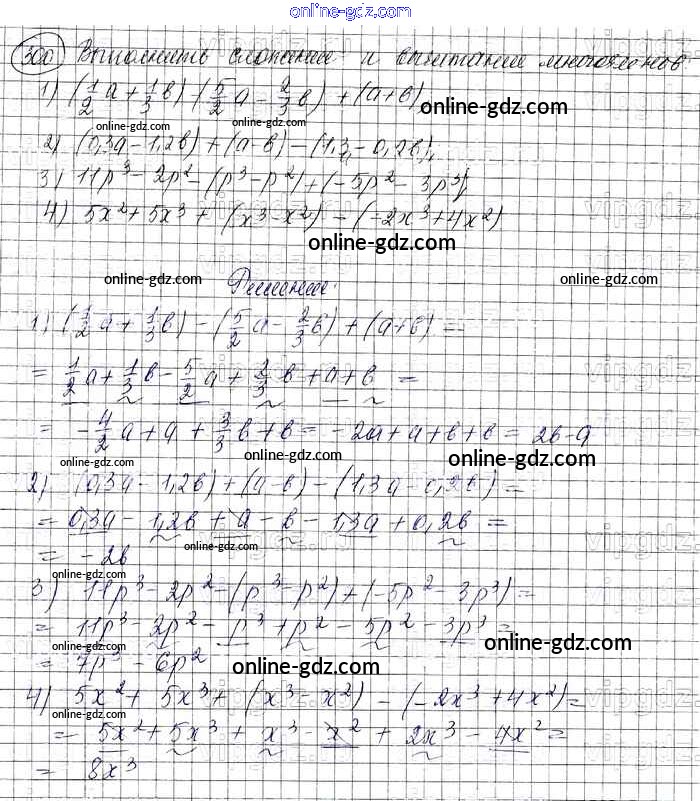 online-gdz.com
300 Выполнить сложение и вычитание многочленов
1) (1/2 a + 1/3 b) - (5/2 a - 2/3 b) + (a + b)
online-gdz.com
online-gdz.com
2) (0,3a - 1,2b) + (a - b) - (1,3 - 0,2b);
3) 11p³ - 2p² - (p³ - p²) + (-5p² - 3p³);
4) 5x² + 5x³ + (x³ - x²) - (-2x³ + 4x²)
online-gdz.com
Решение:
online-gdz.com
online-gdz.com
1) (1/2 a + 1/3 b) - (5/2 a - 2/3 b) + (a + b) =
= 1/2 a + 1/3 b - 5/2 a + 2/3 b + a + b =
= -4/2 a + a + 3/3 b + b = -2a + a + b + b = 2b - a
online-gdz.com
online-gdz.com
2) (0,3a - 1,2b) + (a - b) - (1,3a - 0,2b) =
= 0,3a - 1,2b + a - b - 1,3a + 0,2b =
= -2b
online-gdz.com
online-gdz.com
3) 11p³ - 2p² - (p³ - p²) + (-5p² - 3p³) =
= 11p³ - 2p² - p³ + p² - 5p² - 3p³ =
online-gdz.com
online-gdz.com
= 7p³ - 6p²
online-gdz.com
4) 5x² + 5x³ + (x³ - x²) - (-2x³ + 4x²) =
online-gdz.com
= 5x² + 5x³ + x³ - x² + 2x³ - 4x² =
online-gdz.com
= 8x³